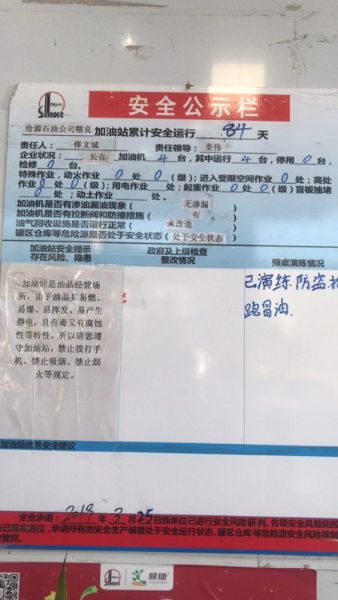 Sinopec
安全公示栏
沧源石油公司糯良 加油站累计安全运行 84 天
责任人：俸文斌 责任领导：奎伟
企业状况：长青 加油机 4 台，其中运行 4 台，停用 0 台，
检修 0 台。
特殊作业，动火作业 0 处 0 (级)；进入受限空间作业 0 处；高处
作业 0 处 0 (级)；用电作业 0 处；起重作业 0 处 0 (级)；盲板抽堵
0 处；动土作业 处。
加油机是否有渗油漏油现象( 无渗漏 )
加油机是否有拉断阀和防撞措施( 有 )
油气回收设施是否运行正常( 未改造 )
罐区仓库等危险源是否处于安全状态( 处于安全状态 )
加油站安全提示
存在风险、隐患
政府及上级检查
整改情况
预案演练情况
加油站是油品经营场
所，由于油品具易燃、
易爆、易挥发、易产生
静电，且有毒又有腐蚀
性等特性，所以请您遵
守加油站，禁止拨打手
机、禁止吸烟、禁止烟
火等规定。
已演练.防盗.抢
跑冒油.
加油站优秀安全建议
企业承诺：2019 年 3 月 25 日我单位已进行安全风险研判，各项安全风险防控
已落实到位，承诺所有的安全生产装置处于安全运行状态，罐区仓库等危险源安全风险得到
管控。
易捷